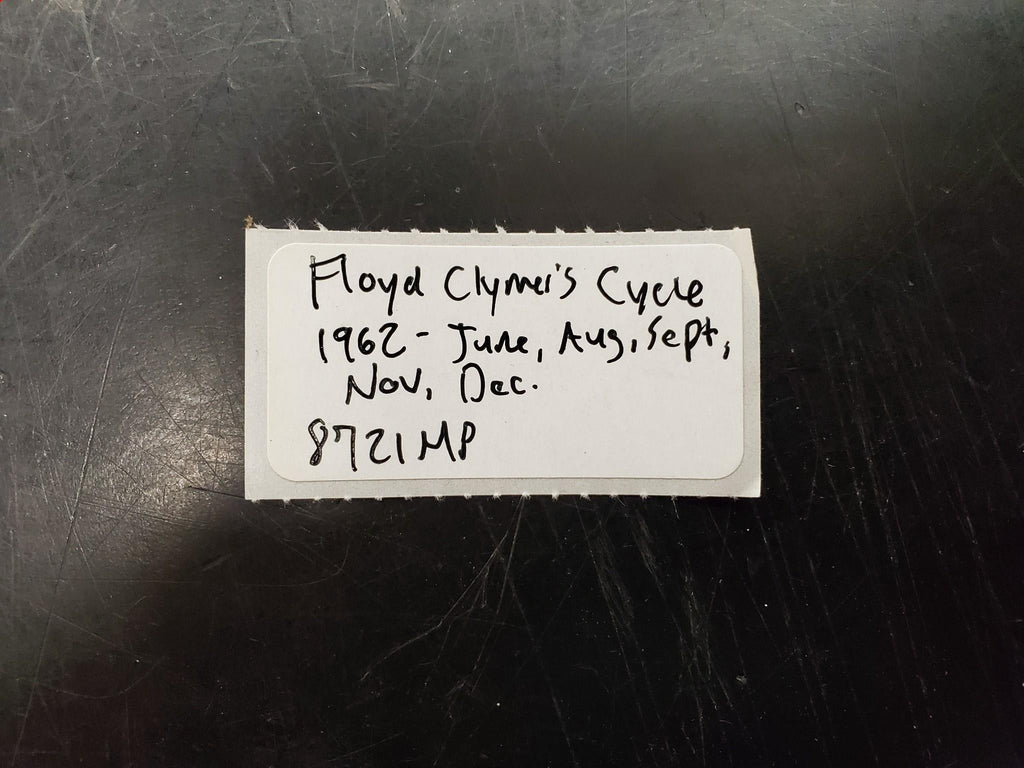 Floyd Clymer's Cycle
1962 - June, Aug, Sept,
Nov, Dec.
8721MP